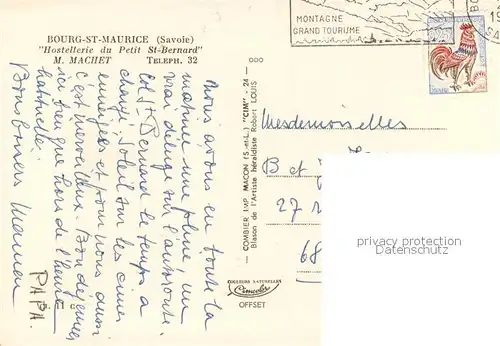 BOURG-ST-MAURICE (Savoie)
"Hostellerie du Petit St-Bernard"
M. MACHET TELEPH. 32
Nous avons eu toute la
matinée une pluie, un
vrai déluge sur l'autoroute.
Col St Bernard le temps a
changé, Soleil sur les cimes
enneigées et pour nous aussi
c'est merveilleux. Bon déjeuner
ici rien que hors de l'heure
habituelle.
Bons baisers Maman
PAPA.
11 c
COMBIER IMP. MACON (S.-et-L.) "CIM" - 24 -
Blason de l'Artiste héraldiste Robert LOUIS
COULEURS NATURELLES
Cimcolor
OFFSET
MONTAGNE
GRAND TOURISME
Mesdemoiselles
B et
27
68
privacy protection
Datenschutz